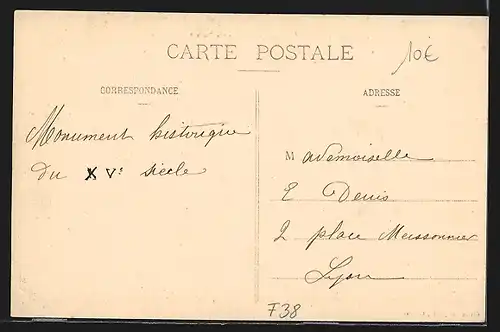 CARTE POSTALE
10€
CORRESPONDANCE
ADRESSE
Monument historique
du XVe siècle
Mademoiselle
E Denis
2 place Meissonnier
Lyon
F38